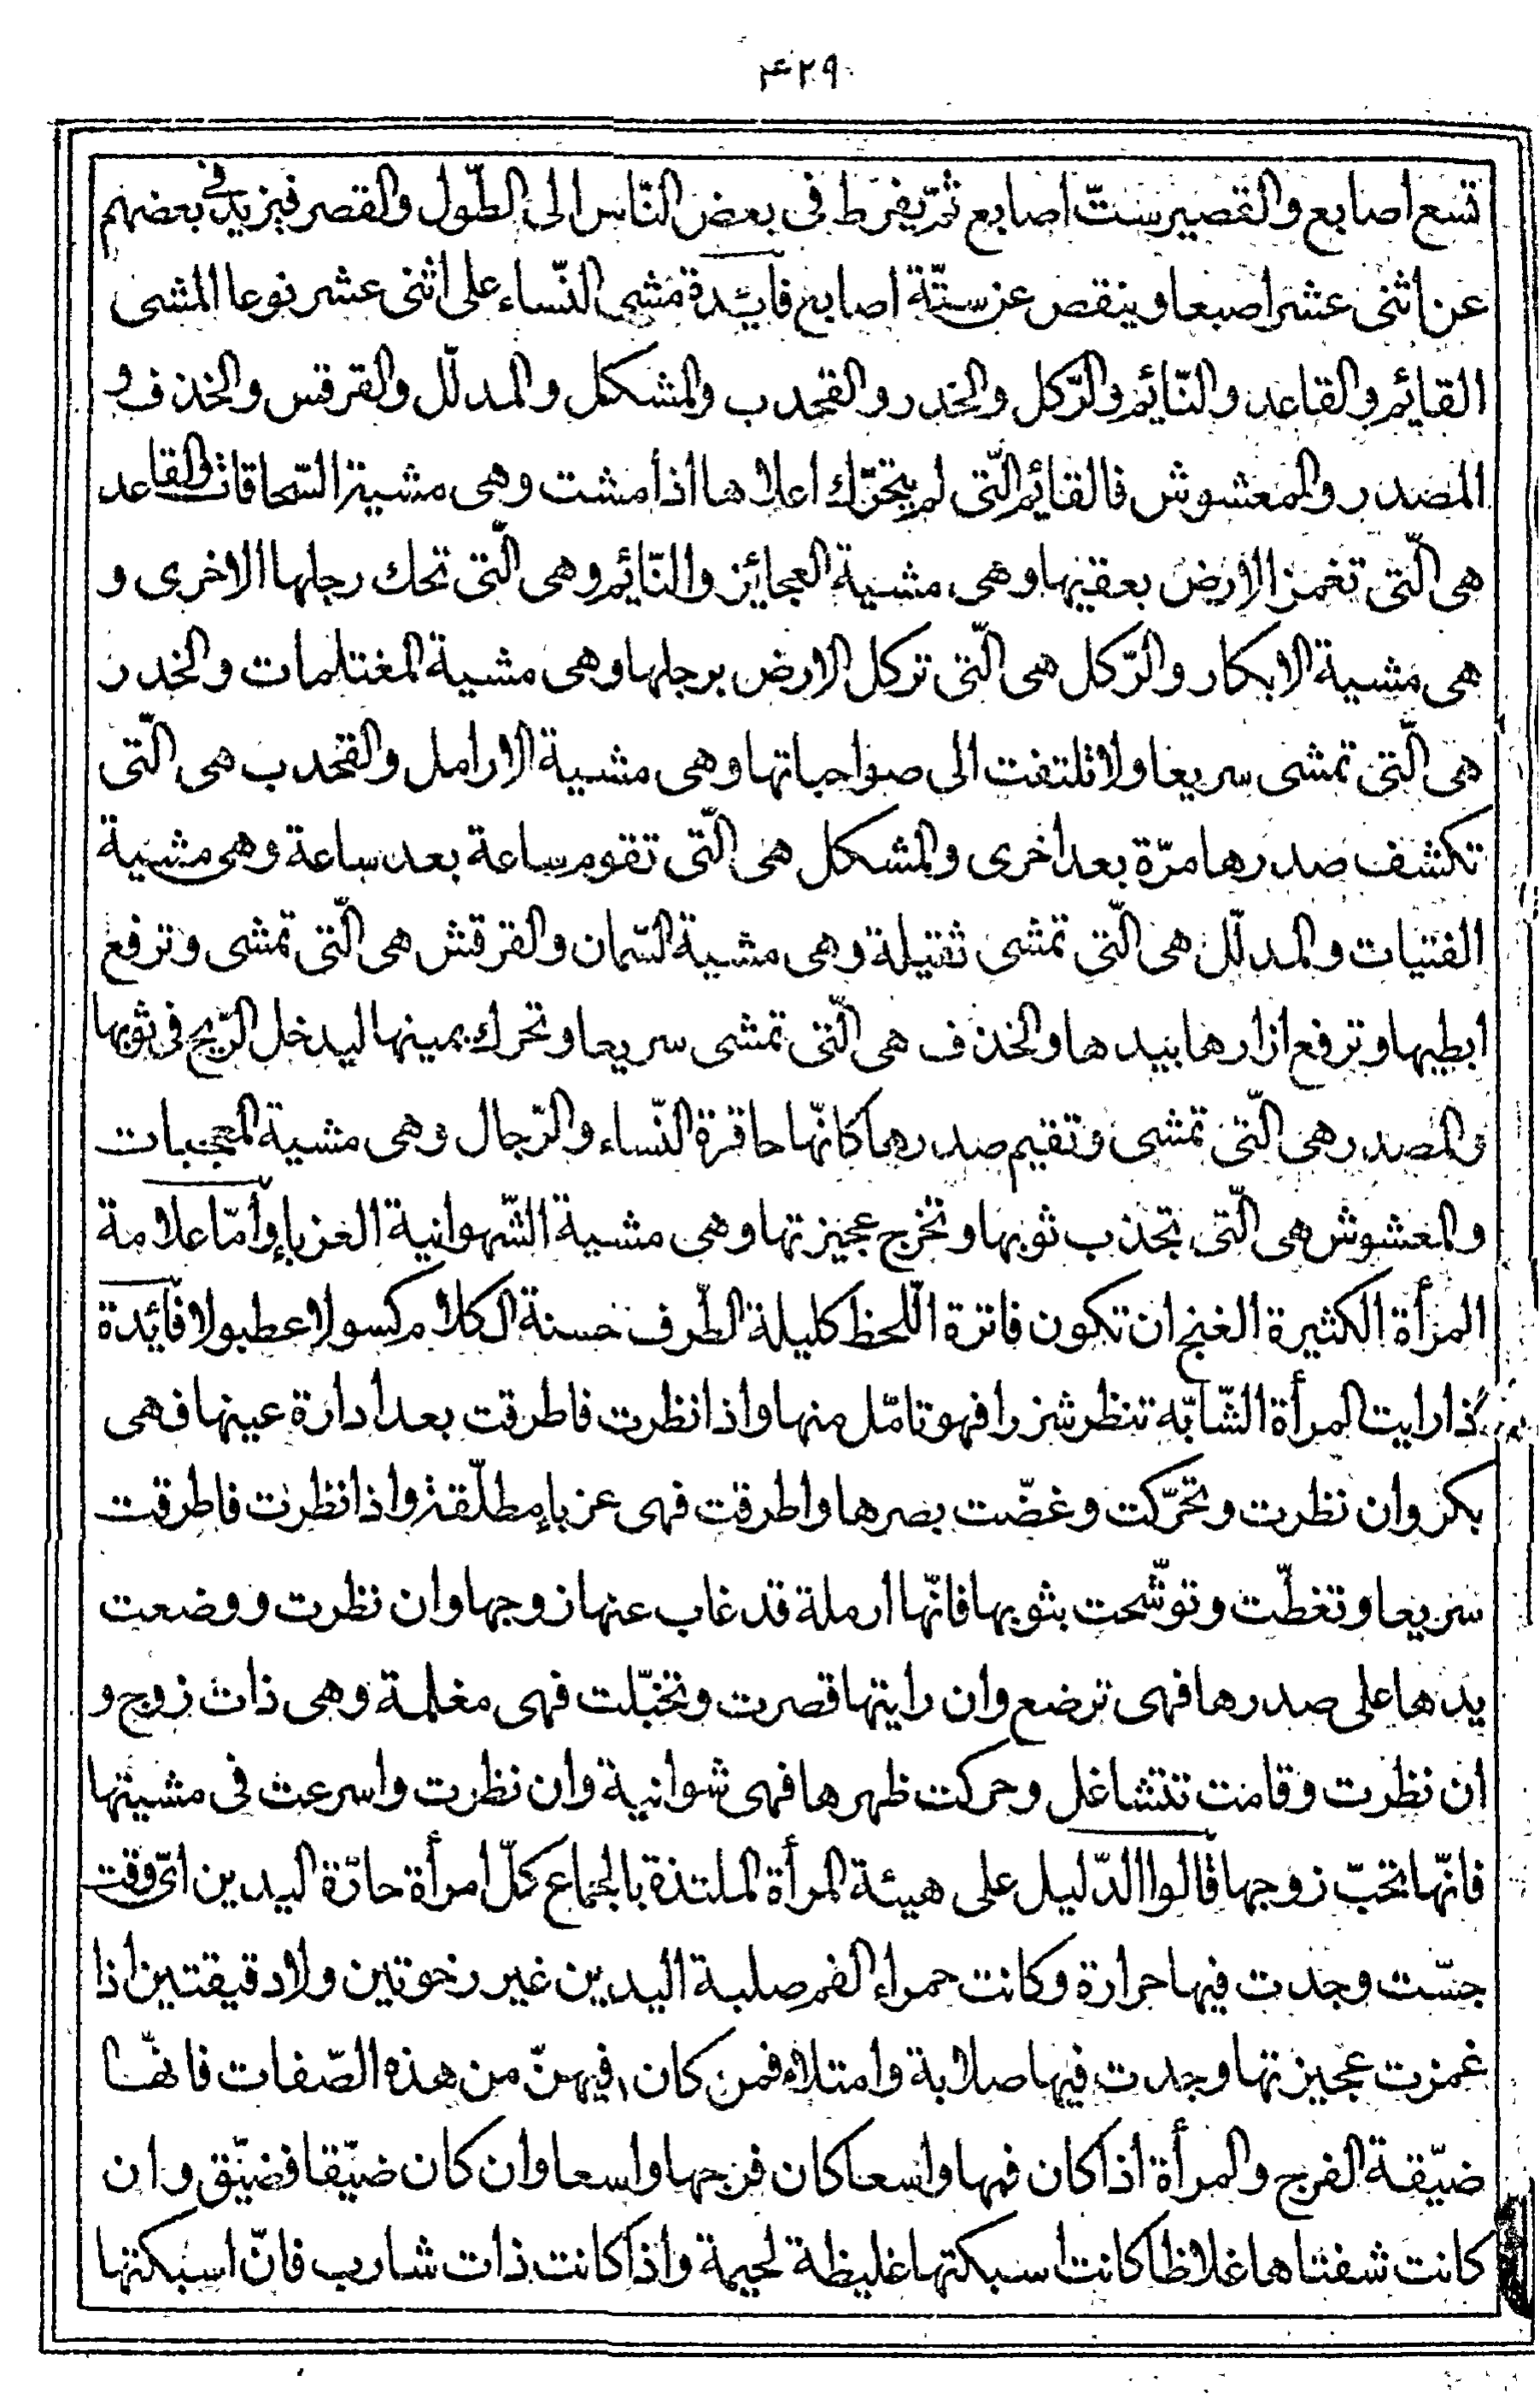 ۴۲۹
تسع اصابع والقصير ستّ اصابع ثمّ يفرط فى بعض النّاس الى الطّول والقصر فيزيد فى بعضهم
عن اثنى عشر اصبعا وينقص عن ستّة اصابع فايدة مشى النّساء على اثنى عشر نوعا المشى
القائم والقاعد والنّائم والرّكل والخدر والقحدب والمشكل والمدلّل والقرقس والخذف و
المصدر والمعشوش فالقايم الّتى لم يتحرّك اعلاها اذا مشت وهى مشية السّحاقات والقاعد
هى الّتى تغمز الارض بعقبها وهى مشية العجايز والنّايم وهى الّتى تحك رجلها الاخرى و
هى مشية الابكار والرّكل هى الّتى تركل الارض برجلها وهى مشية المغتلمات والخدر
هى الّتى تمشى سريعا ولا تلتفت الى صواحباتها وهى مشية الارامل والقحدب هى الّتى
تكشف صدرها مرّة بعد اخرى والمشكل هى الّتى تقوم ساعة بعد ساعة وهى مشية
الفتيات والمدلّل هى الّتى تمشى ثقيلة وهى مشية السّمان والقرقش هى الّتى تمشى وترفع
ابطيها وترفع ازارها بيدها والخذف هى الّتى تمشى سريعا وتحرك يمينها ليدخل الرّيح فى ثوبها
والمصدر هى الّتى تمشى وتقيم صدرها كانّها حاقرة النّساء والرّجال وهى مشية المعجبات
والمعشوش هى الّتى تجذب ثوبها وتخرج عجيزتها وهى مشية الشّهوانية العزباء وامّا علامة
المرأة الكثيرة الغنج ان تكون فاترة اللّحظ كليلة الطّرف حسنة الكلام كسولا عطبولا فائدة
اذا رايت المرأة الشّابّه تنظر شزرا فهو تامّل منها واذا نظرت فاطرقت بعد ادارة عينها فهى
بكر وان نظرت وتحرّكت وغضّت بصرها واطرقت فهى عزباء مطلّقة واذا نظرت فاطرقت
سريعا وتغطّت وتوشّحت بثوبها فانّها ارملة قد غاب عنها زوجها وان نظرت ووضعت
يدها على صدرها فهى ترضع وان رايتها قصرت وتخبّلت فهى مغلمة وهى ذات زوج و
ان نظرت وقامت تتشاغل وحركت ظهرها فهى شوانية وان نظرت واسرعت فى مشيتها
فانّها تحبّ زوجها قالوا الدّليل على هيئة المرأة الملتذة بالجماع كلّ امرأة حارّة اليدين اىّ وقت
جسّت وجدت فيها حرارة وكانت حمراء الفم صلبة اليدين غير رخوتين ولا دقيقتين اذا
غمزت عجيزتها وجدت فيها صلابة وامتلاء فمن كان فيهنّ من هذه الصّفات فانها
ضيّقة الفرج والمرأة اذا كان فمها واسعا كان فرجها واسعا وان كان ضيّقا فضيّق وان
كانت شفتاها غلاظا كانت اسبكتها غليظة لحيمة واذا كانت ذات شارب فانّ اسبكتها